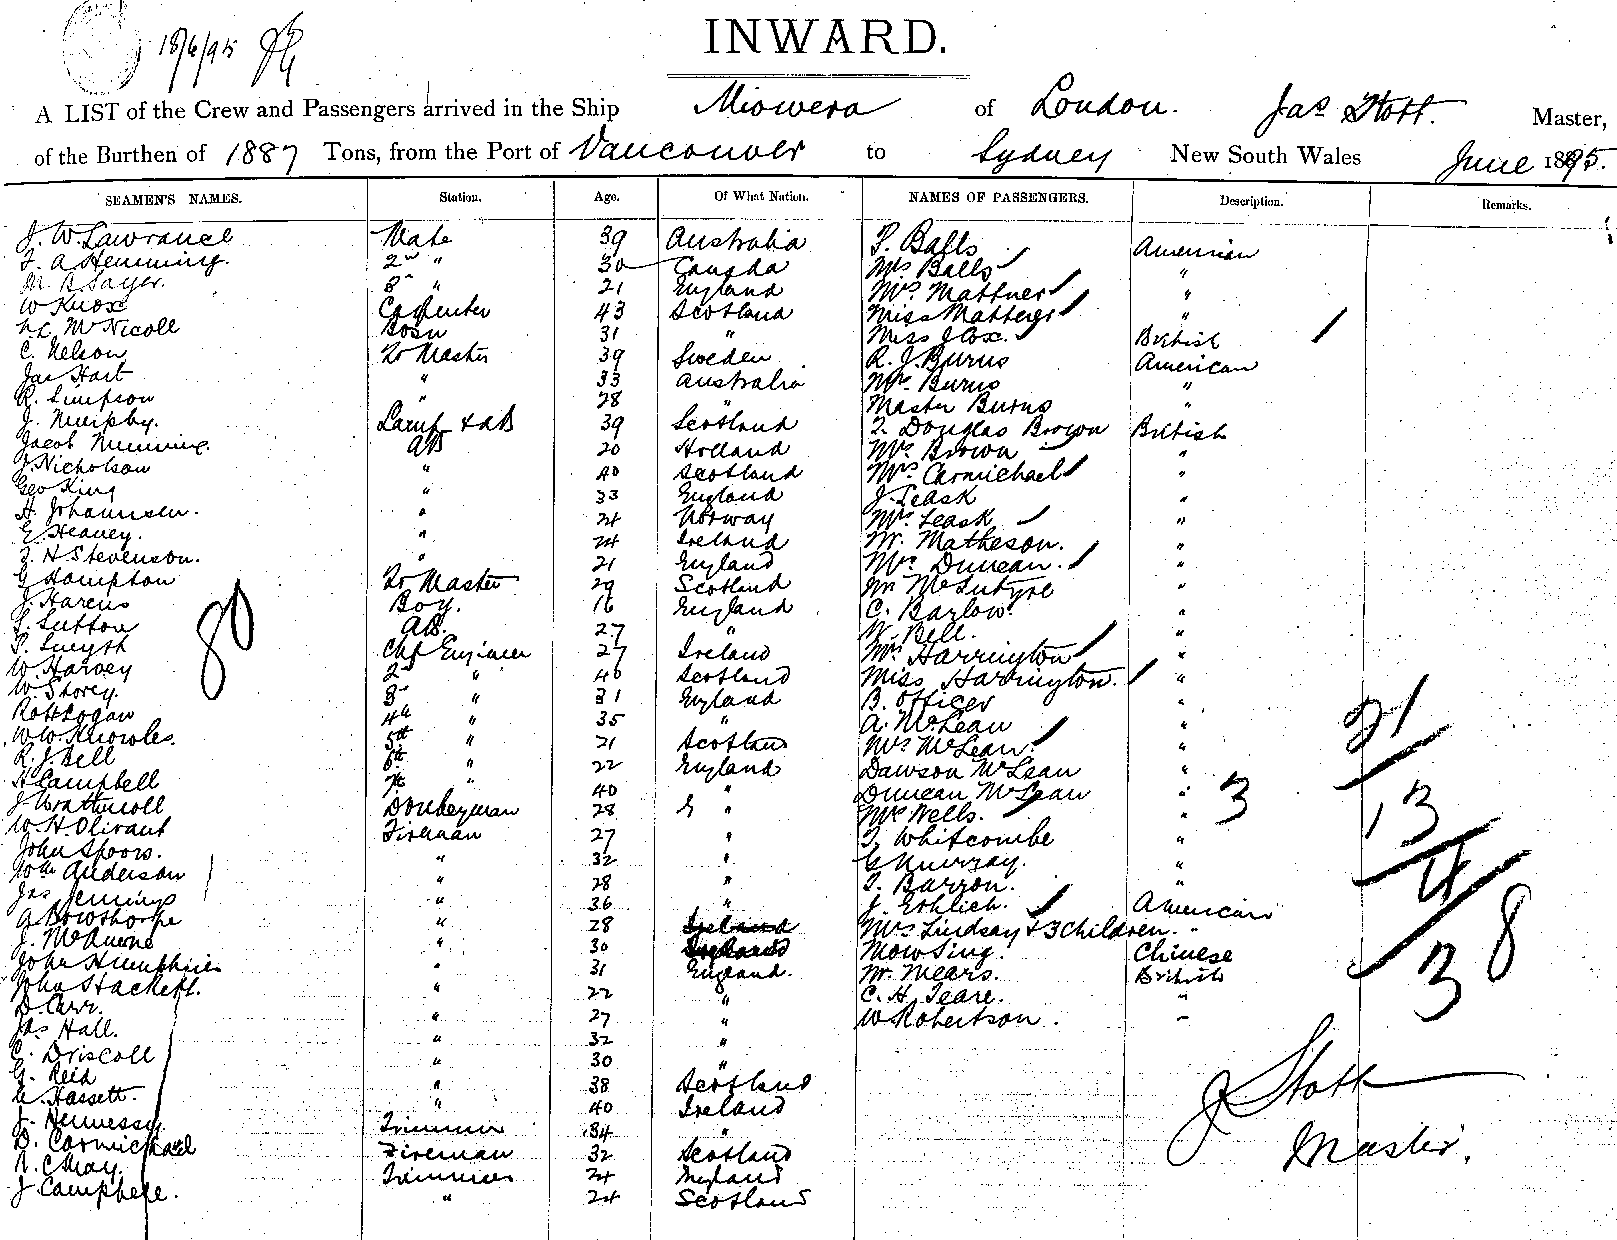 18/6/95
INWARD.
A LIST of the Crew and Passengers arrived in the Ship Miowera of London. Jas Stott. Master,
of the Burthen of 1887 Tons, from the Port of Vancouver to Sydney New South Wales June 1895.
SEAMEN'S NAMES. Station. Age. Of What Nation. NAMES OF PASSENGERS. Description. Remarks.
J. W. Lawrance Mate 39 Australia P. Balls American
F. A Hemming. 2nd " 30 Canada Mrs Balls "
M. B Sayer. 3rd " 21 England Mrs. Mattner "
W Knox Carpenter 43 Scotland Miss Mattner "
McNicoll Bosn 31 " Miss J Cox. British
C. Nelson Qr Master 39 Sweden R. J. Burns American
Jas Hart " 33 Australia Mrs. Burns "
R. Simpson " 28 " Master Burns "
J. Murphy. Lamp & AB 39 Scotland T. Douglas Brown British
Jacob AB 20 Holland Mrs. Brown "
J. Nicholson " 40 Scotland Mrs. Carmichael "
Geo King " 33 England J. Leask "
H. Johannsen. " 24 Norway Mrs. Leask "
E. Heaney. " 24 Ireland W. Matheson. "
J. H Stevenson. " 21 England Mrs Duncan. "
G Hampton Qr Master 29 Scotland Mr McIntyre "
J. Harcus Boy. 16 England C. Barlow. "
S. Sutton AB. 27 " W. Bell. "
P. Smyth Chf Engineer 27 Ireland Mrs Harrington "
W. Harvey 2nd " 40 Scotland Miss Harrington. "
W Storey. 3rd " 31 England B. Officer "
Robt Logan 4th " 35 " A. McLean "
W. W. Knowles. 5th " 21 Scotland Mrs McLean. "
R. J. Bell 6th " 22 England Dawson McLean "
H Campbell 7th " 40 " Duncan McLean "
J Donkeyman 28 " Mrs Wells. "
W. H Olivant Fireman 27 " T Whitcombe "
John Spoors. " 32 " G Murray. "
Anderson " 28 " T. Barron. "
Jas Jennings " 36 " J. Ehrlich. American
A Bowthorpe " 28 Ireland Mrs Lindsay & 3 Children. "
J. " 30 Mow Sing. Chinese
John Humphries " 31 England. W. Mears. British
John Hackett. " 22 " C. H. Teare. "
D. Carr. " 27 " W Robertson. "
Jas Hall. " 32 "
C. Driscoll " 30 "
G. Reid " 38 Scotland
Hassett. " 40 Ireland
J. Hennessy Trimmer 34 "
D. Carmichael Fireman 32 Scotland
May. Trimmer 24 England
J Campbell. " 24 Scotland
80
21
13
3
4
3
8
J Stott
Master.